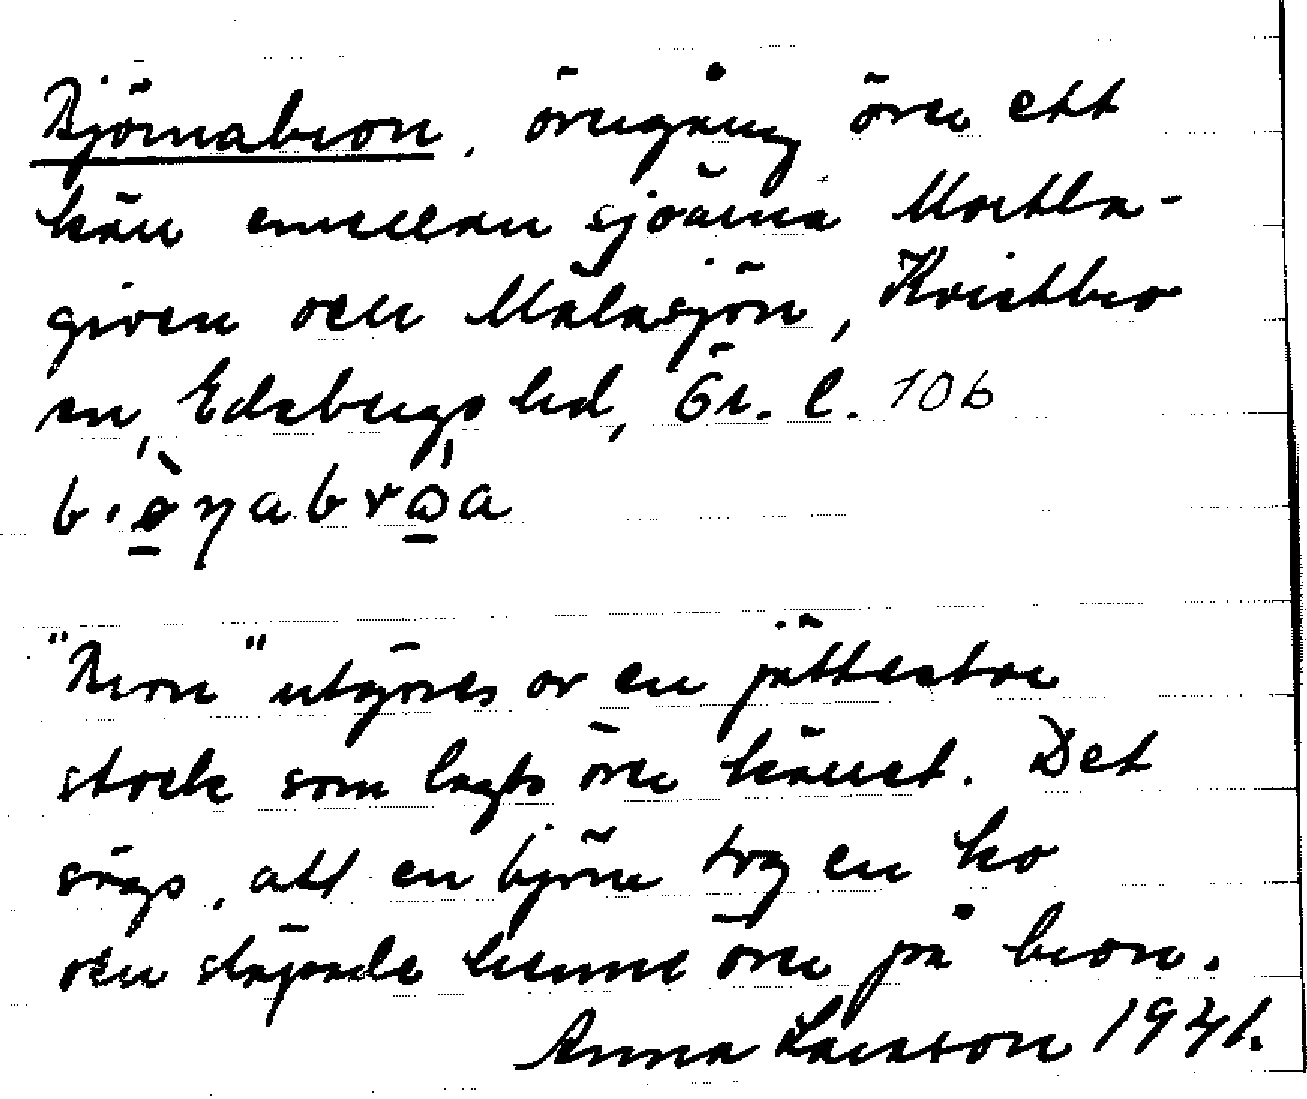 Björnabron, övergång över ett
kärr emellan sjöarna Mortla-
given och Mälasjön, Kvistbro
sn, Edsbergs hd, Ör. l. 106
"Bron" utgöres av en jättestor
stock som lagts över kärret. Det
sägs, att en björn tog en ko
och släpade henne över på bron.
Anna Larsson 1941.